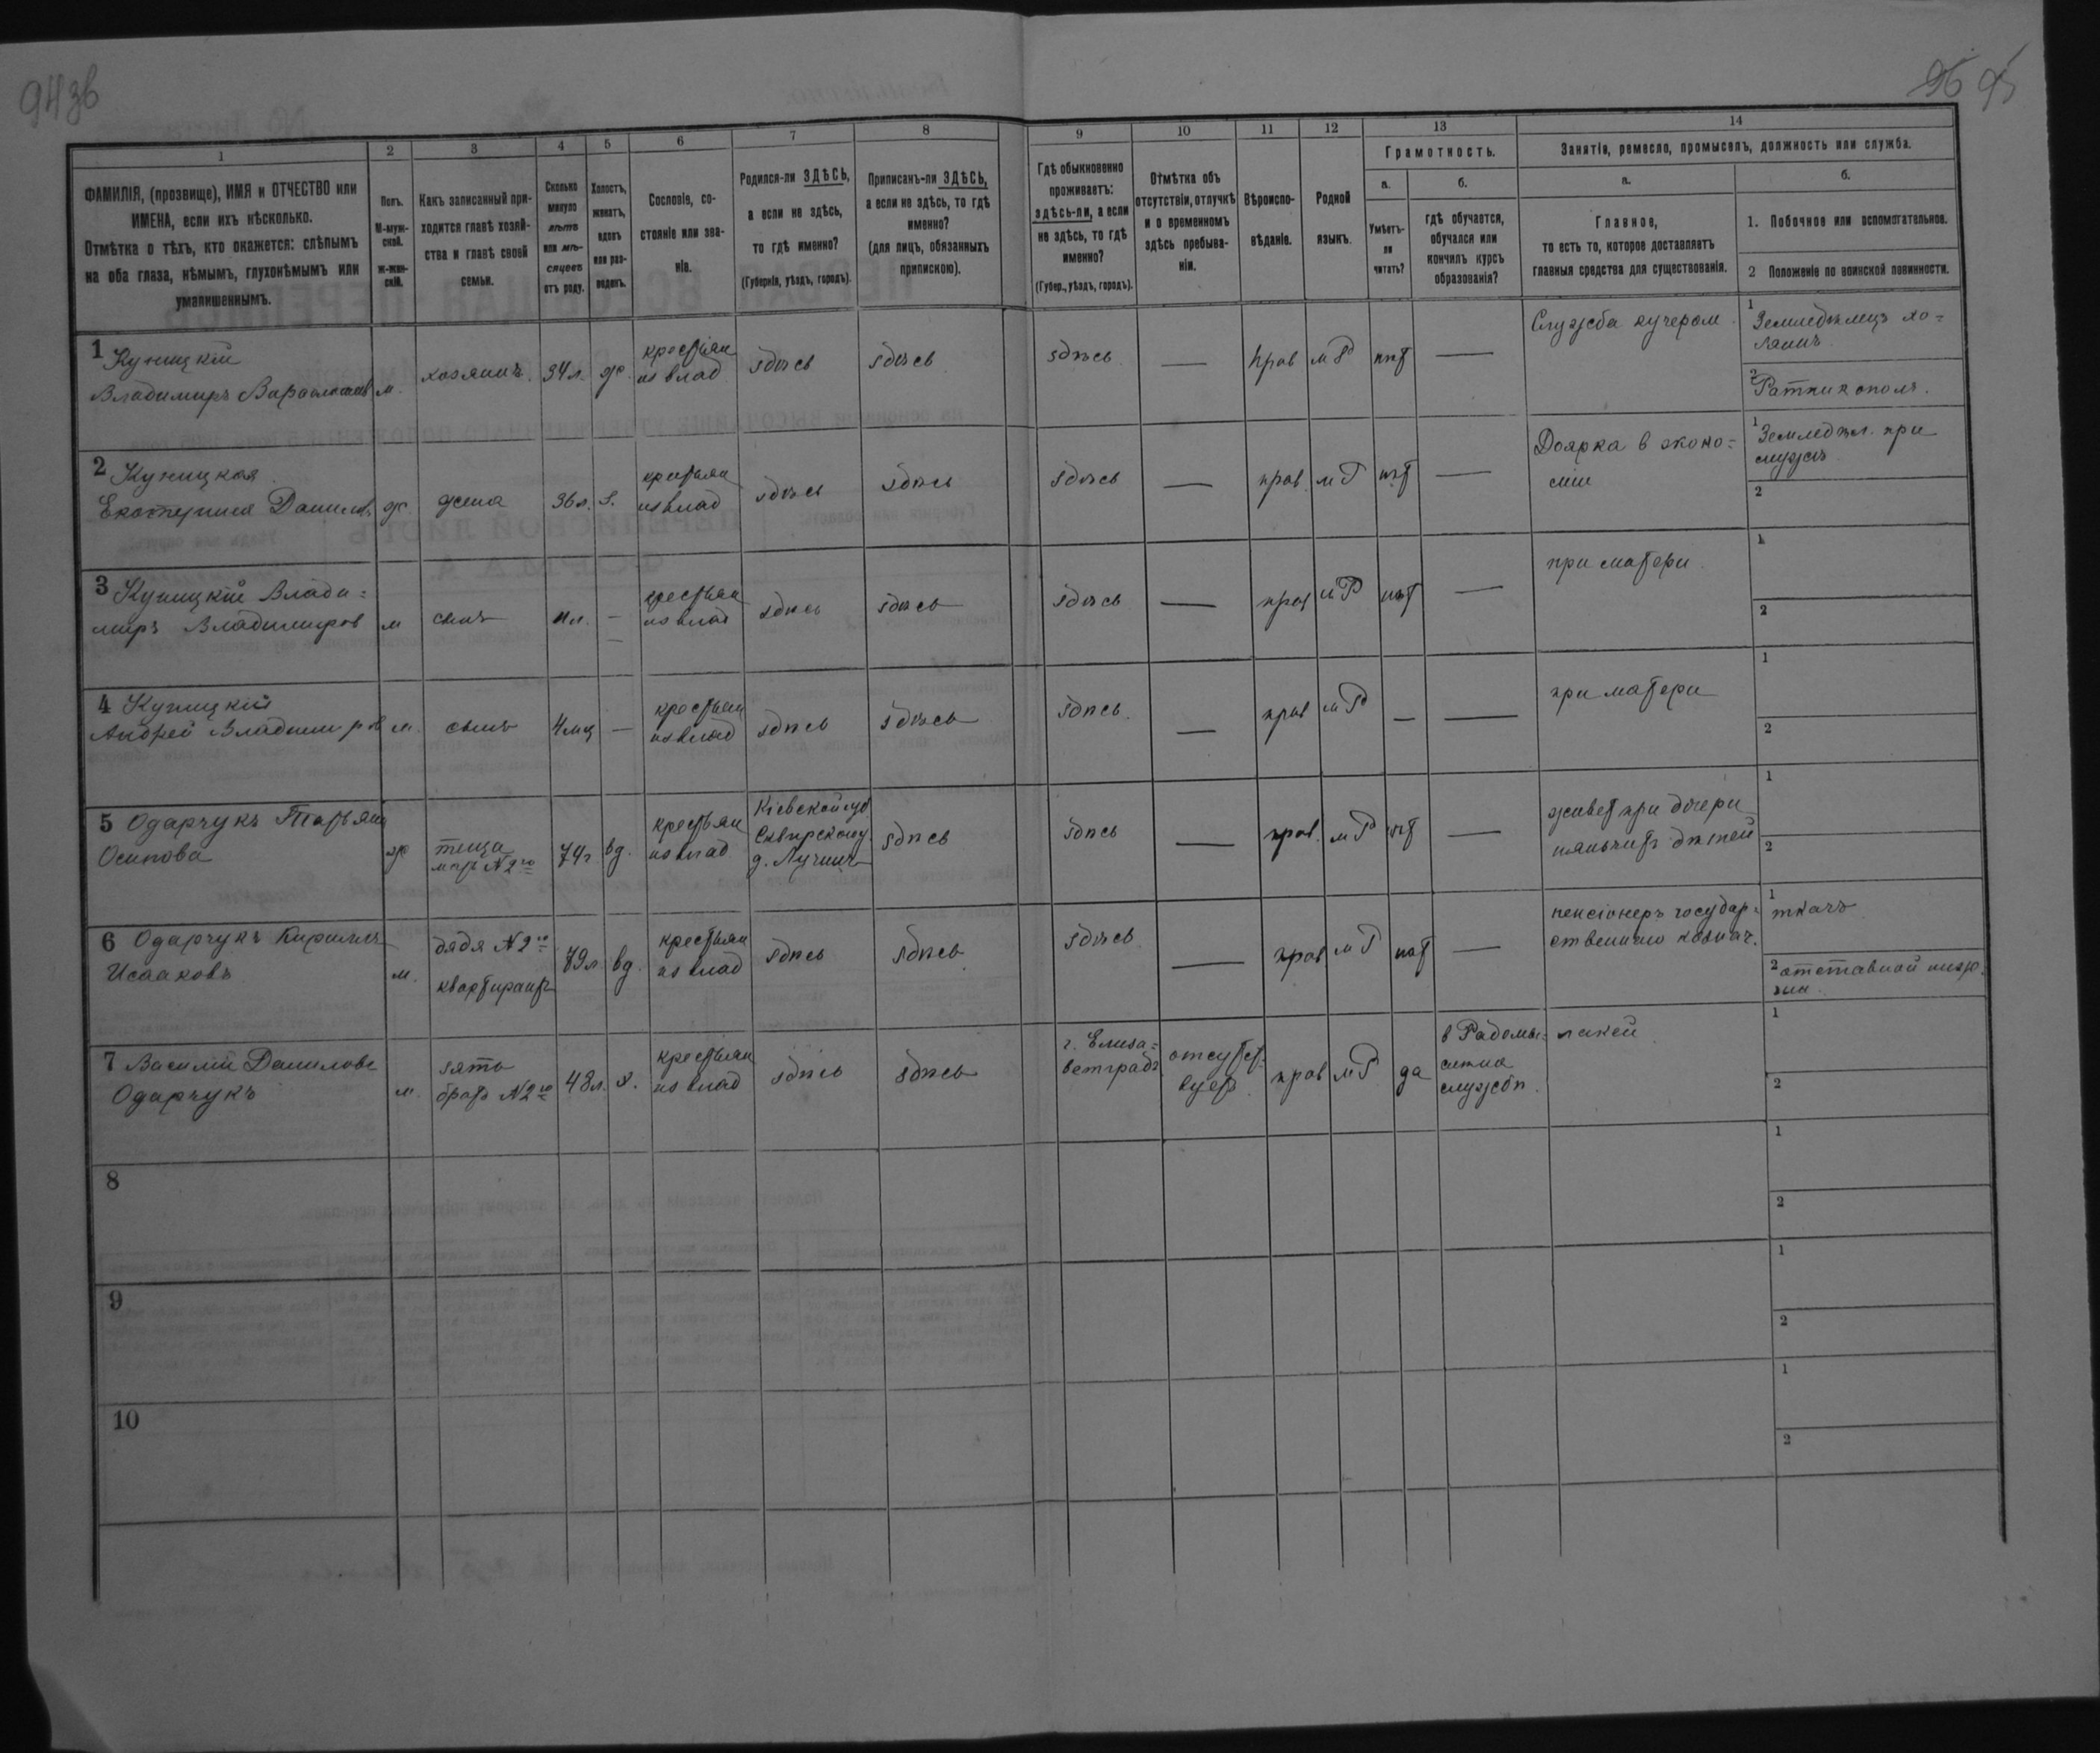 94 зв
96 95
1 2 3 4 5 6 7 8 9 10 11 12 13 14
ФАМИЛІЯ, (прозвище), ИМЯ и ОТЧЕСТВО или
ИМЕНА, если ихъ нѣсколько.
Отмѣтка о тѣхъ, кто окажется: слѣпымъ
на оба глаза, нѣмымъ, глухонѣмымъ или
умалишеннымъ.
Полъ.
М-муж-
ской.
ж-жен-
скій.
Какъ записанный при-
ходится главѣ хозяй-
ства и главѣ своей
семьи.
Сколько
минуло
лѣтъ
или мѣ-
сяцевъ
отъ роду.
Холостъ,
женатъ,
вдовъ
или раз-
веденъ.
Сословіе, со-
стояніе или зва-
ніе.
Родился-ли ЗДѢСЬ,
а если не здѣсь,
то гдѣ именно?
(Губернія, уѣздъ, городъ).
Приписанъ-ли ЗДѢСЬ,
а если не здѣсь, то гдѣ
именно?
(для лицъ, обязанныхъ
припискою).
Гдѣ обыкновенно
проживаетъ:
здѣсь-ли, а если
не здѣсь, то гдѣ
именно?
(Губер., уѣздъ, городъ).
Отмѣтка объ
отсутствіи, отлучкѣ
и о временномъ
здѣсь пребыва-
ніи.
Вѣроиспо-
вѣданіе.
Родной
языкъ.
Грамотность.
а.
Умѣетъ-
ли
читать?
б.
гдѣ обучается,
обучался или
кончилъ курсъ
образованія?
Занятія, ремесло, промыселъ, должность или служба.
а.
Главное,
то есть то, которое доставляетъ
главныя средства для существованія.
б.
1. Побочное или вспомогательное.
2 Положеніе по воинской повинности.
1 Куницкій
Владимиръ
м.
хозяинъ.
34 л.
ж.
крестьян
из влад
здѣсь
здѣсь
здѣсь
—
прав
мР
нѣт
—
Служба кучером
1 Земледѣлецъ хо=
зяинъ
2 Ратник ополч.
2 Куницкая
Екатерина Данилов.
ж
жена
36 л.
з.
крестьян
из влад
здѣсь
здѣсь
здѣсь
—
прав.
мР
нѣт
—
Доярка в эконо=
міи
1 Земледѣл. при
мужѣ
2
3 Куницкій Влади=
миръ Владимиров
м
сынъ
4 л.
—
крестьян
из влад
здѣсь
здѣсь
здѣсь
—
прав
мР
нѣт
—
при матери.
1
2
4 Куницкій
Андрей Владимиров
м.
сынъ
4 мц
—
крестьян
из влад
здѣсь
здѣсь
здѣсь.
—
прав
мР
—
—
при матери
1
2
5 Одарчукъ Татьяна
Осипова
ж
теща
мать N 2го
74 г.
вд.
крестьян
из влад
Кіевской губ
Сквирскому.
д. Лучинъ
здѣсь
здѣсь
—
прав.
мР
нѣт
—
живет при дочери
няньчитъ дѣтей
1
2
6 Одарчукъ Кириллъ
Исааковъ
м.
дядя N 2го
квартирантъ
79 л.
вд.
крестьян
из влад
здѣсь
здѣсь
здѣсь
—
прав
мР
нѣт
—
пенсіонеръ государ=
ственнаго казнач.
1 ткачъ
2 отставной ниж.
чин.
7 Василій Даниловъ
Одарчукъ
м.
зять
братъ N 2го
43 л.
х.
крестьян
из влад
здѣсь
здѣсь
г. Елиза=
ветградъ
отсутст=
вует.
прав
мР
да
в Радомы=
службѣ.
лакей
1
2
8
1
2
9
1
2
10
1
2